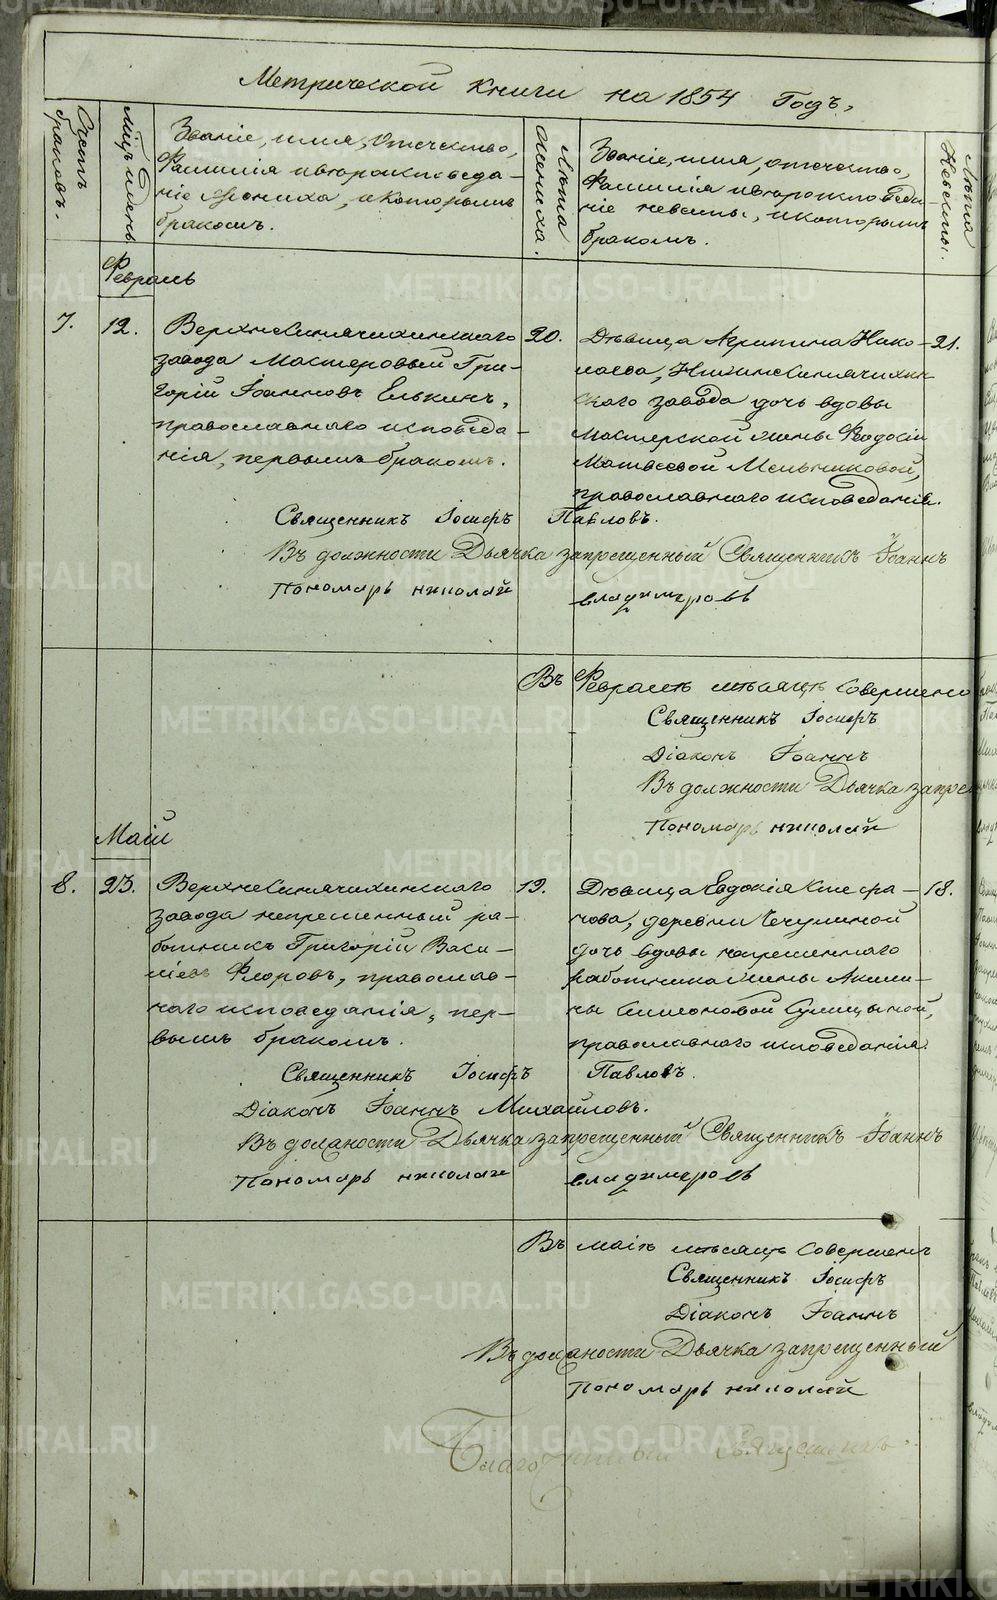 Метрической книги на 1854 Годъ,
Счетъ браковъ.
Мѣсяцъ и день
Званіе, имя, отчество,
Фамилія и вѣроисповеда-
ніе жениха, и которымъ
бракомъ.
Лѣта жениха.
Званіе, имя, отчество,
Фамилія и вѣроисповеда-
ніе невесты, и которымъ
бракомъ.
Лѣта Невесты.
Февраль
7. 12.
ВерхнеСинячихинскаго
завода Мастеровый Гри-
горій Іоанновъ Елькинъ,
православнаго исповеда-
нія, первымъ бракомъ.
20.
Дѣвица Агрипина Нико-
лаева, НижнеСинячихин
скаго завода дочь вдовы
мастерской жены Феодосіи
Матвеевой Мельниковой,
православнаго исповеданія.
21.
Священникъ Іосифъ Павловъ.
Въ должности Дьячка запрещенный Священникъ Іоаннъ
Пономарь николай владимеровъ
Въ Февралѣ мѣсяцѣ Совершено
Священникъ Іосифъ
Діаконъ Іоаннъ
Въ должности Дьячка запрещ
Пономарь николай
Маій
8. 23.
ВерхнеСинячихинскаго
завода непременный ра-
ботникъ Григорій Васи-
ліевъ Флоровъ, православ-
наго исповеданія, пер-
вымъ бракомъ.
19.
Дѣвица Евдокія Стефа-
нова, деревни Чечулиной
дочь вдовы непременнаго
работника жены Акили-
ны Симоновой Сулицыной,
православнаго исповеданія.
18.
Священникъ Іосифъ Павловъ.
Діаконъ Іоаннъ Михайловъ.
Въ должности Дьячка запрещенный Священникъ Іоаннъ
Пономарь николай владимеровъ
Въ маіѣ мѣсяцѣ Совершенъ
Священникъ Іосифъ
Діаконъ Іоаннъ
Въ должности Дьячка запрещенный
Пономарь николай
Благочинный Священникъ
METRIKI.GASO-URAL.RU